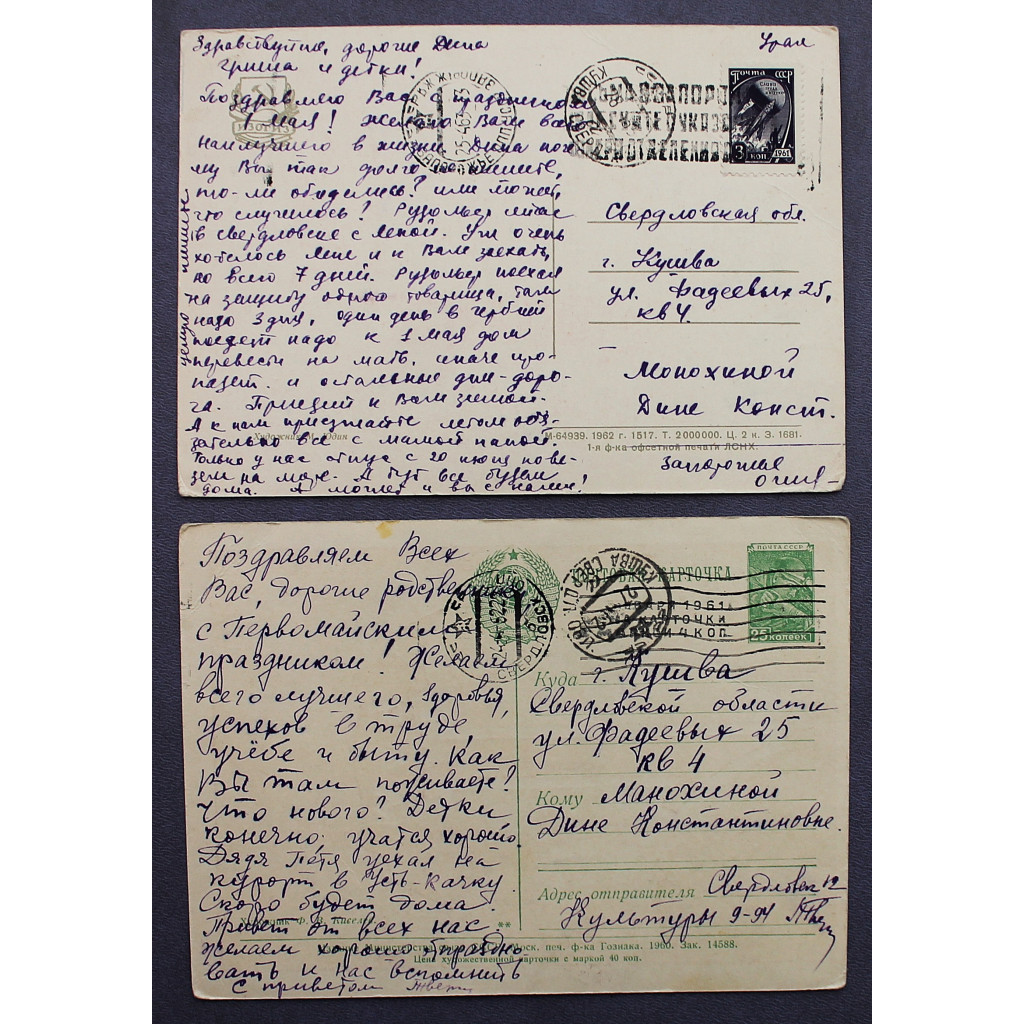 Здравствуйте, дорогие Дина
Гриша и детки!
Поздравляем Вас с праздником
1 мая! Желаем Вам все
наилучшего в жизни. Дина поче
му Вы так долго не пишите,
то-ли обиделись? или может
что случилось? Рудольф сейчас
в Свердловске с Леной. Уж очень
хотелось Лене и к Вам заехать,
но всего 7 дней. Рудольф поехал
на защиту одного товарища, там
надо 3 дня, один день в
поедет надо к 1 мая дом
перевести на мать, иначе про-
падет. и остальные дни-доро-
га. Приедит к Вам зимой.
А к нам приезжайте летом обя-
зательно все с мамой папой.
Только у нас отпус с 20 июня пове-
зем на море. А тут все будем
дома. А может и вы с нами!
целую пишите
Художник Юдин
ИЗОГИЗ
Урал
ПОЧТА СССР
3 КОП
1961
Свердловская обл.
г. Кушва
ул. Фадеевых 25,
кв 4.
Монохиной
Дине Конст.
М-64939. 1962 г. 1517. Т. 2000000. Ц. 2 к. З. 1681.
1-я ф-ка офсетной печати ЛСНХ.
Запорожье
Поздравляем Всех
Вас, дорогие родственники
с Первомайским
праздником! Желаем
всего лучшего, здоровья,
успехов в труде,
учёбе и быту. Как
Вы там поживаете?
Что нового? Детки
конечно учатся хорошо.
Дядя Петя уехал на
курорт в Усть-Качку.
Скоро будет дома
Привет от всех нас
Желаем хорошо праздно
вать и нас вспомнить
с приветом
ПОЧТОВАЯ КАРТОЧКА
ПОЧТА СССР
25 КОПЕЕК
Куда г. Кушва
Свердловской области
ул. Фадеевых 25
кв 4
Кому Манохиной
Дине Константиновне.
Адрес отправителя Свердловск 12
Культуры 9-94
**
Моск. печ. ф-ка Гознака. 1960. Зак. 14588.
Цена художественной карточки с маркой 40 коп.